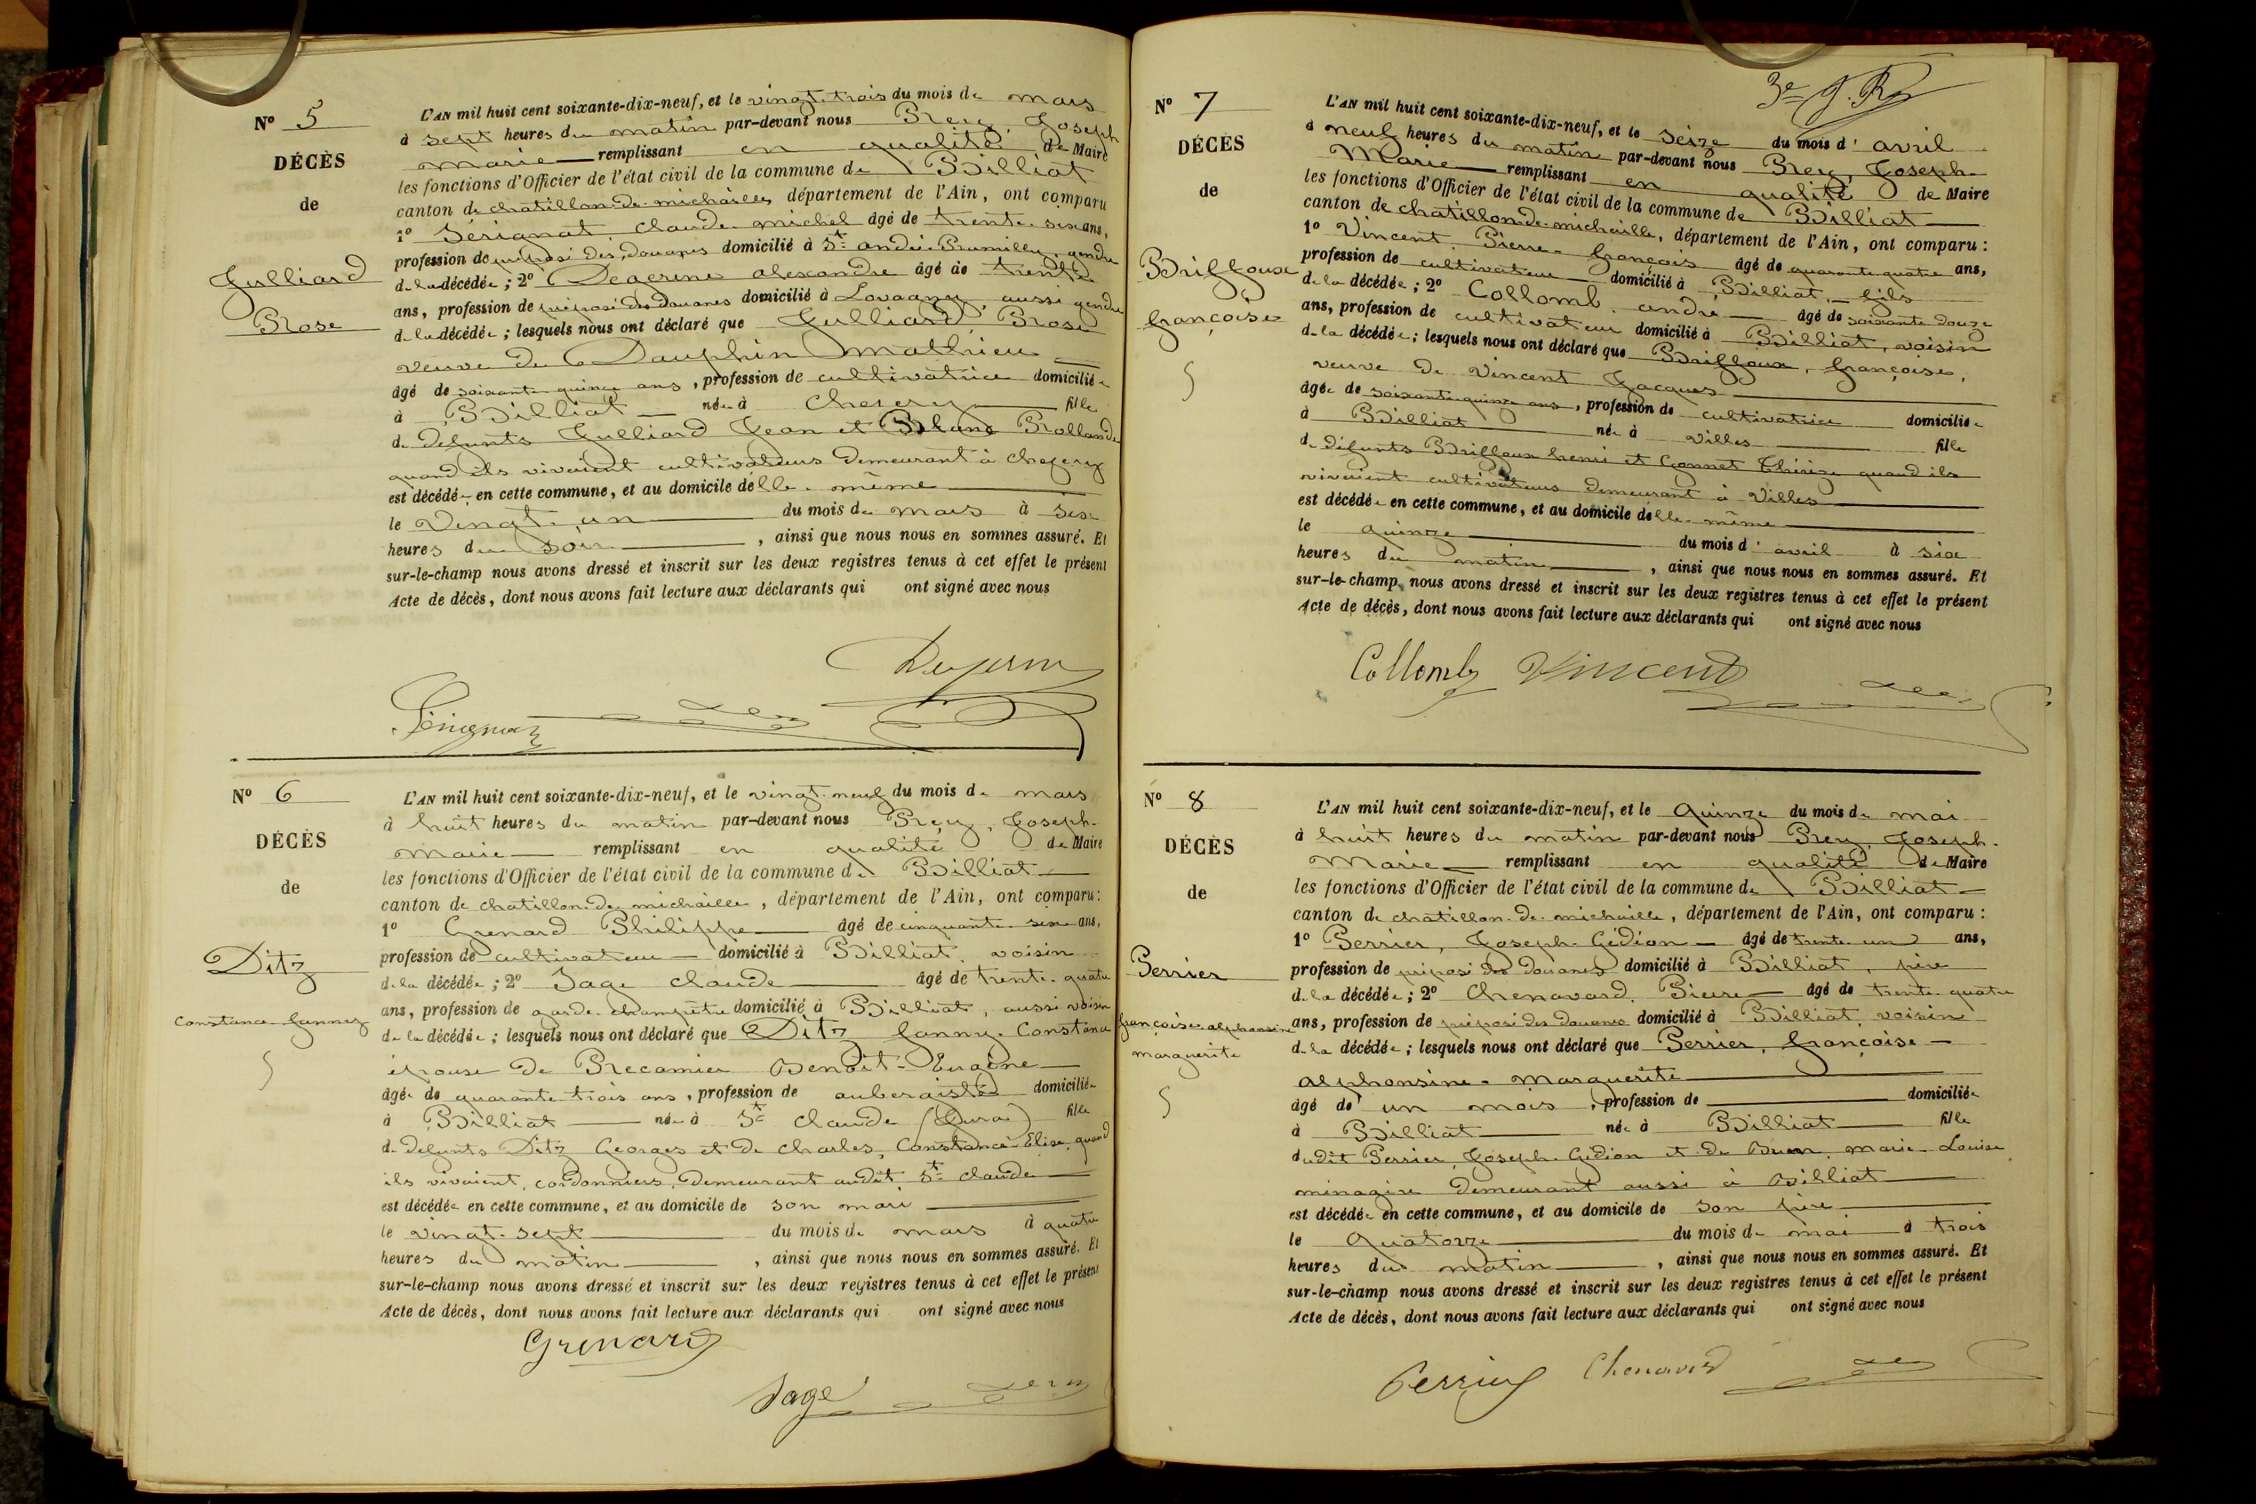 N° 5
DÉCÈS
de
Julliard
Rose
L'AN mil huit cent soixante-dix-neuf, et le vingt-trois du mois de mars
à sept heures du matin par-devant nous Joseph
marie remplissant en qualité de Maire
les fonctions d'Officier de l'état civil de la commune de Billiat
canton de chatillon-de-michailles département de l'Ain, ont comparu
1° Sérignat, claude michel âgé de trente-six ans,
profession de préposé des douanes domicilié à St andré Rumilly, gendre
de la décédée ; 2° alexandre âgé de trente
ans, profession de préposé des douanes domicilié à Lovagny, aussi gendre
de la décédée ; lesquels nous ont déclaré que Julliard, Rose
veuve de Dauphin mathieu
âgé de soixante quinze ans, profession de cultivatrice domiciliée
à Billiat née à Chezery fille
de défunts Julliard Jean et Blanc Rollande
quand ils vivaient cultivateurs demeurant à chezery
est décédée en cette commune, et au domicile delle-même
le vingt-un du mois de mars à six
heures du soir, ainsi que nous nous en sommes assuré. Et
sur-le-champ nous avons dressé et inscrit sur les deux registres tenus à cet effet le présent
Acte de décès, dont nous avons fait lecture aux déclarants qui ont signé avec nous
N° 6
DÉCÈS
de
Ditz
Constance fanny
L'AN mil huit cent soixante-dix-neuf, et le vingt-neuf du mois de mars
à huit heures du matin par-devant nous Joseph-
marie remplissant en qualité de Maire
les fonctions d'Officier de l'état civil de la commune de Billiat
canton de chatillon-de-michaille, département de l'Ain, ont comparu :
1° Grenard Philippe âgé de cinquante-six ans,
profession de cultivateur domicilié à Billiat, voisin
de la décédée ; 2° Sage claude âgé de trente-quatre
ans, profession de garde-champêtre domicilié à Billiat, aussi voisin
de la décédée ; lesquels nous ont déclaré que Ditz fanny-Constance
épouse de Recamier Benoît-Eugène
âgée de quarante-trois ans, profession de aubergiste domiciliée
à Billiat née à St claude (Jura) fille
de défunts Ditz Georges et de charles, Constance-Elise, quand
ils vivaient, cordonniers, demeurant audit St claude
est décédée en cette commune, et au domicile de son mari
le vingt-sept du mois de mars à quatre
heures du matin, ainsi que nous nous en sommes assuré. Et
sur-le-champ nous avons dressé et inscrit sur les deux registres tenus à cet effet le présent
Acte de décès, dont nous avons fait lecture aux déclarants qui ont signé avec nous
Grenard
Sage
N° 7
DÉCÈS
de
Briffoux
françoise
L'AN mil huit cent soixante-dix-neuf, et le seize du mois d'avril
à neuf heures du matin par-devant nous Joseph-
Marie remplissant en qualité de Maire
les fonctions d'Officier de l'état civil de la commune de Billiat
canton de chatillon-de-michaille, département de l'Ain, ont comparu :
1° Vincent, Pierre-françois âgé de quarante-quatre ans,
profession de cultivateur domicilié à Billiat, fils
de la décédée ; 2° Collomb andré âgé de soixante douze
ans, profession de cultivateur domicilié à Billiat, voisin
de la décédée ; lesquels nous ont déclaré que Briffoux, françoise,
veuve de Vincent Jacques
âgée de soixante-quinze ans, profession de cultivatrice domiciliée
à Billiat née à Villes fille
de défunts Briffoux henri et Gonnet Thérèze quand ils
vivaient cultivateurs demeurant à Villes
est décédée en cette commune, et au domicile delle-même
le quinze du mois d'avril à six
heures du matin, ainsi que nous nous en sommes assuré. Et
sur-le-champ nous avons dressé et inscrit sur les deux registres tenus à cet effet le présent
Acte de décès, dont nous avons fait lecture aux déclarants qui ont signé avec nous
Collomb Vincent
N° 8
DÉCÈS
de
Perrier
françoise-alphonsine
marguerite
L'AN mil huit cent soixante-dix-neuf, et le quinze du mois de mai
à huit heures du matin par-devant nous Joseph-
Marie remplissant en qualité de Maire
les fonctions d'Officier de l'état civil de la commune de Billiat
canton de chatillon-de-michaille, département de l'Ain, ont comparu :
1° Perrier, Joseph-Gédéon âgé de trente-un ans,
profession de préposé des douanes domicilié à Billiat, père
de la décédée ; 2° Chenavard, Pierre âgé de trente-quatre
ans, profession de préposé des douanes domicilié à Billiat, voisin
de la décédée ; lesquels nous ont déclaré que Perrier, françoise-
alphonsine-marguerite
âgé de un mois, profession de domiciliée
à Billiat née à Billiat fille
dudit Perrier, Joseph-Gédéon et de marie-Louise,
ménagère demeurant aussi à Billiat
est décédée en cette commune, et au domicile de son père
le quatorze du mois de mai à trois
heures du matin, ainsi que nous nous en sommes assuré. Et
sur-le-champ nous avons dressé et inscrit sur les deux registres tenus à cet effet le présent
Acte de décès, dont nous avons fait lecture aux déclarants qui ont signé avec nous
Perrier Chenavard